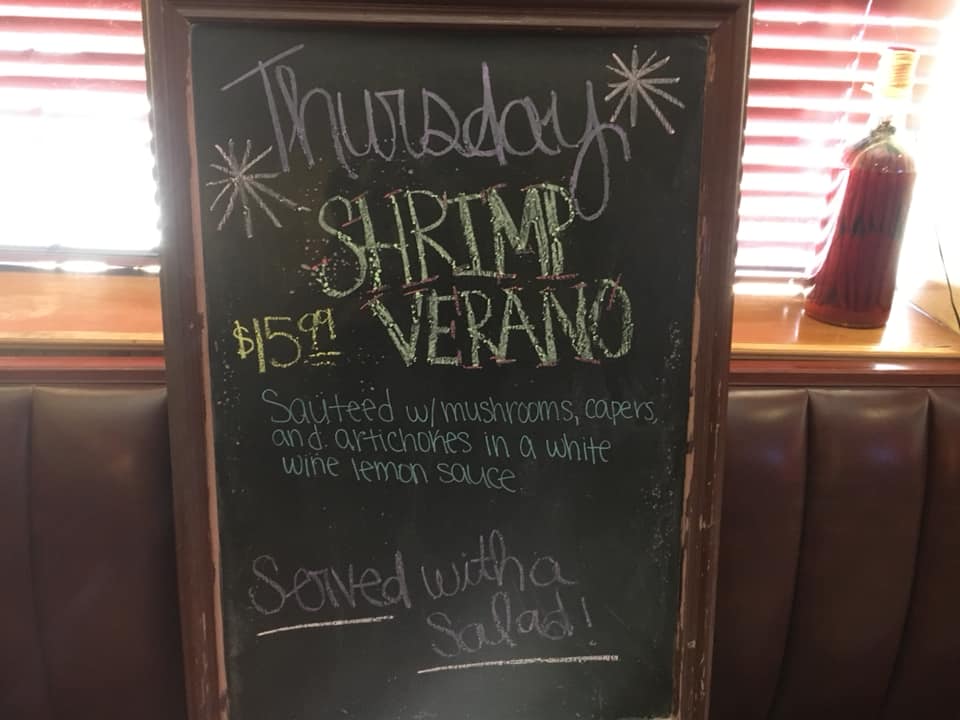 Thursday
SHRIMP
VERANO
$15.99
Sauteed w/mushrooms, capers,
and artichokes in a white
wine lemon sauce
Served with a
Salad!